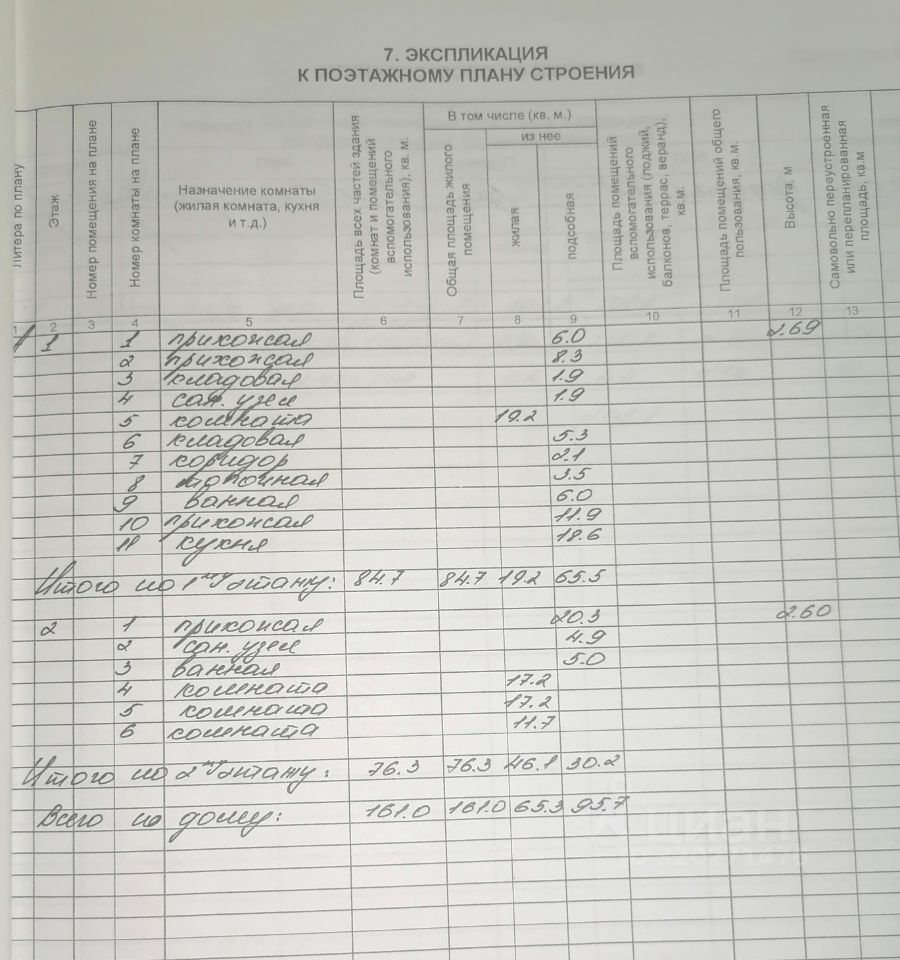 7. ЭКСПЛИКАЦИЯ
К ПОЭТАЖНОМУ ПЛАНУ СТРОЕНИЯ
Литера по плану
Этаж
Номер помещения на плане
Номер комнаты на плане
Назначение комнаты
(жилая комната, кухня
и т.д.)
Площадь всех частей здания
(комнат и помещений
вспомогательного
использования), кв. м.
В том числе (кв. м.)
Общая площадь жилого
помещения
из нее
жилая
подсобная
Площадь помещений
вспомогательного
использования (лоджий,
балконов, террас, веранд),
кв.м
Площадь помещений общего
пользования, кв.м.
Высота, м
Самовольно переустроенная
или перепланированная
площадь, кв.м
1 2 3 4 5 6 7 8 9 10 11 12 13
1 1 прихожая 6.0 2.69
2 прихожая 8.3
3 кладовая 1.9
4 сан. узел 1.9
5 комната 19.2
6 кладовая 5.3
7 коридор 2.1
8 топочная 3.5
9 ванная 6.0
10 прихожая 11.9
11 кухня 18.6
Итого по 1му этажу: 84.7 84.7 19.2 65.5
2 1 прихожая 20.3 2.60
2 сан. узел 4.9
3 ванная 5.0
4 комната 17.2
5 комната 17.2
6 комната 11.7
Итого по 2му этажу: 76.3 76.3 46.1 30.2
Всего по дому: 161.0 161.0 65.3 95.7
Циан